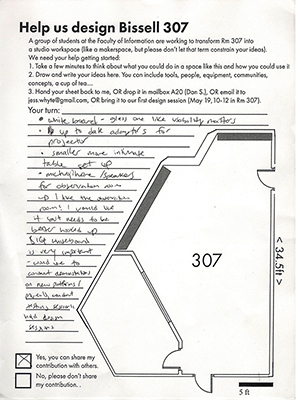 Help us design Bissell 307
A group of students at the Faculty of Information are working to transform Rm 307 into
a studio workspace (like a makerspace, but please don't let that term constrain your ideas).
We need your help getting started:
1. Take a few minutes to think about what you could do in a space like this and how you could use it
2. Draw and write your ideas here. You can include tools, people, equipment, communities,
concepts, a cup of tea...
3. Hand your sheet back to me, OR drop it in mailbox A20 (Dan S.), OR email it to
jess.whyte@gmail.com, OR bring it to our first design session (May 19, 10-12 in Rm 307).
Your turn:
• white board - glass one like usability
• up to date adaptors for
projector
• smaller more intimate
table set up
• microphone/speakers
for observation room
up I like the observation
room! I would like
it just needs to be
better hooked up
whiteboard
is very important
- would like to
conduct demonstrations
on new
existing
design
sessions
307
< 34.5ft >
5 ft
Yes, you can share my
contribution with others.
No, please don't share
my contribution. .